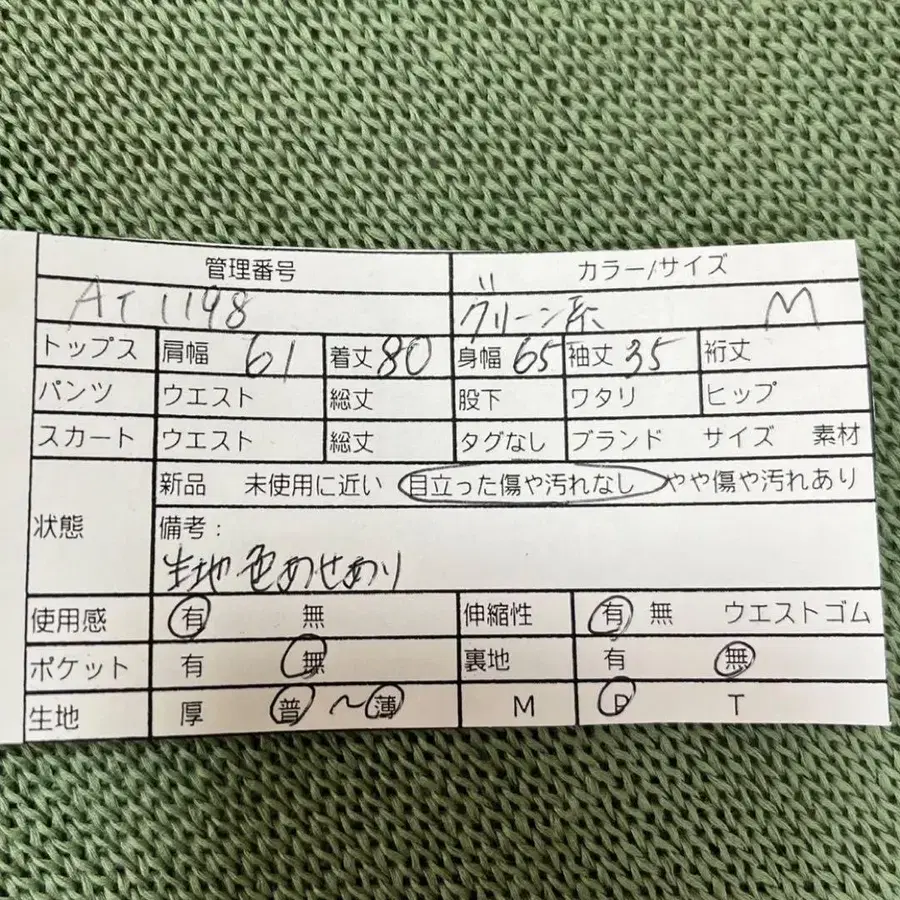 管理番号 カラー/サイズ
AT 1198 グリーン系 M
トップス 肩幅 61 着丈 80 身幅 65 袖丈 35 裄丈
パンツ ウエスト 総丈 股下 ワタリ ヒップ
スカート ウエスト 総丈 タグなし ブランド サイズ 素材
状態 新品 未使用に近い 目立った傷や汚れなし やや傷や汚れあり
備考：
生地色あせあり
使用感 有 無 伸縮性 有 無 ウエストゴム
ポケット 有 無 裏地 有 無
生地 厚 普 〜 薄 M P T